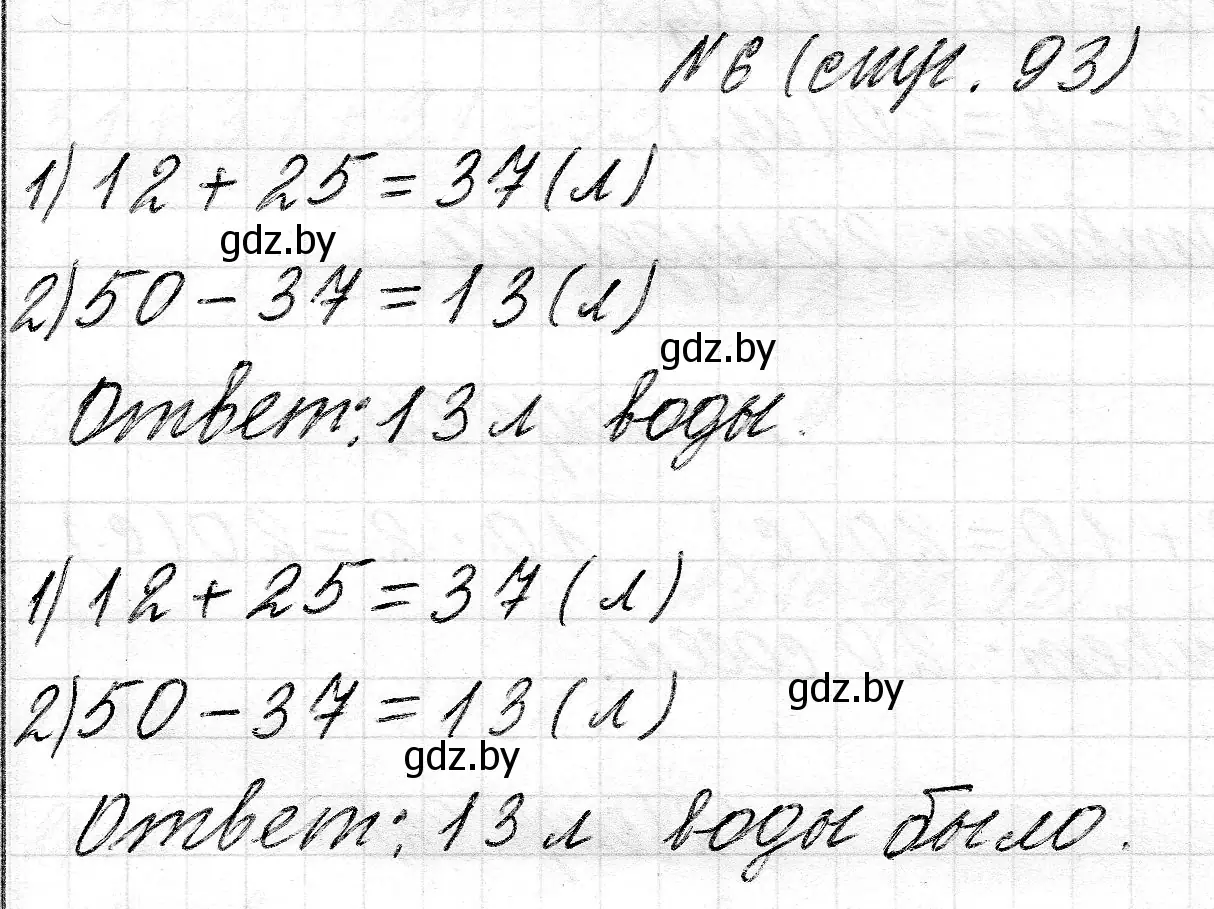 № 6 (стр. 93)
1) 12 + 25 = 37 (л)
gdz.by
2) 50 - 37 = 13 (л)
gdz.by
Ответ: 13 л воды.
1) 12 + 25 = 37 (л)
2) 50 - 37 = 13 (л)
gdz.by
gdz.by
Ответ: 13 л воды было.